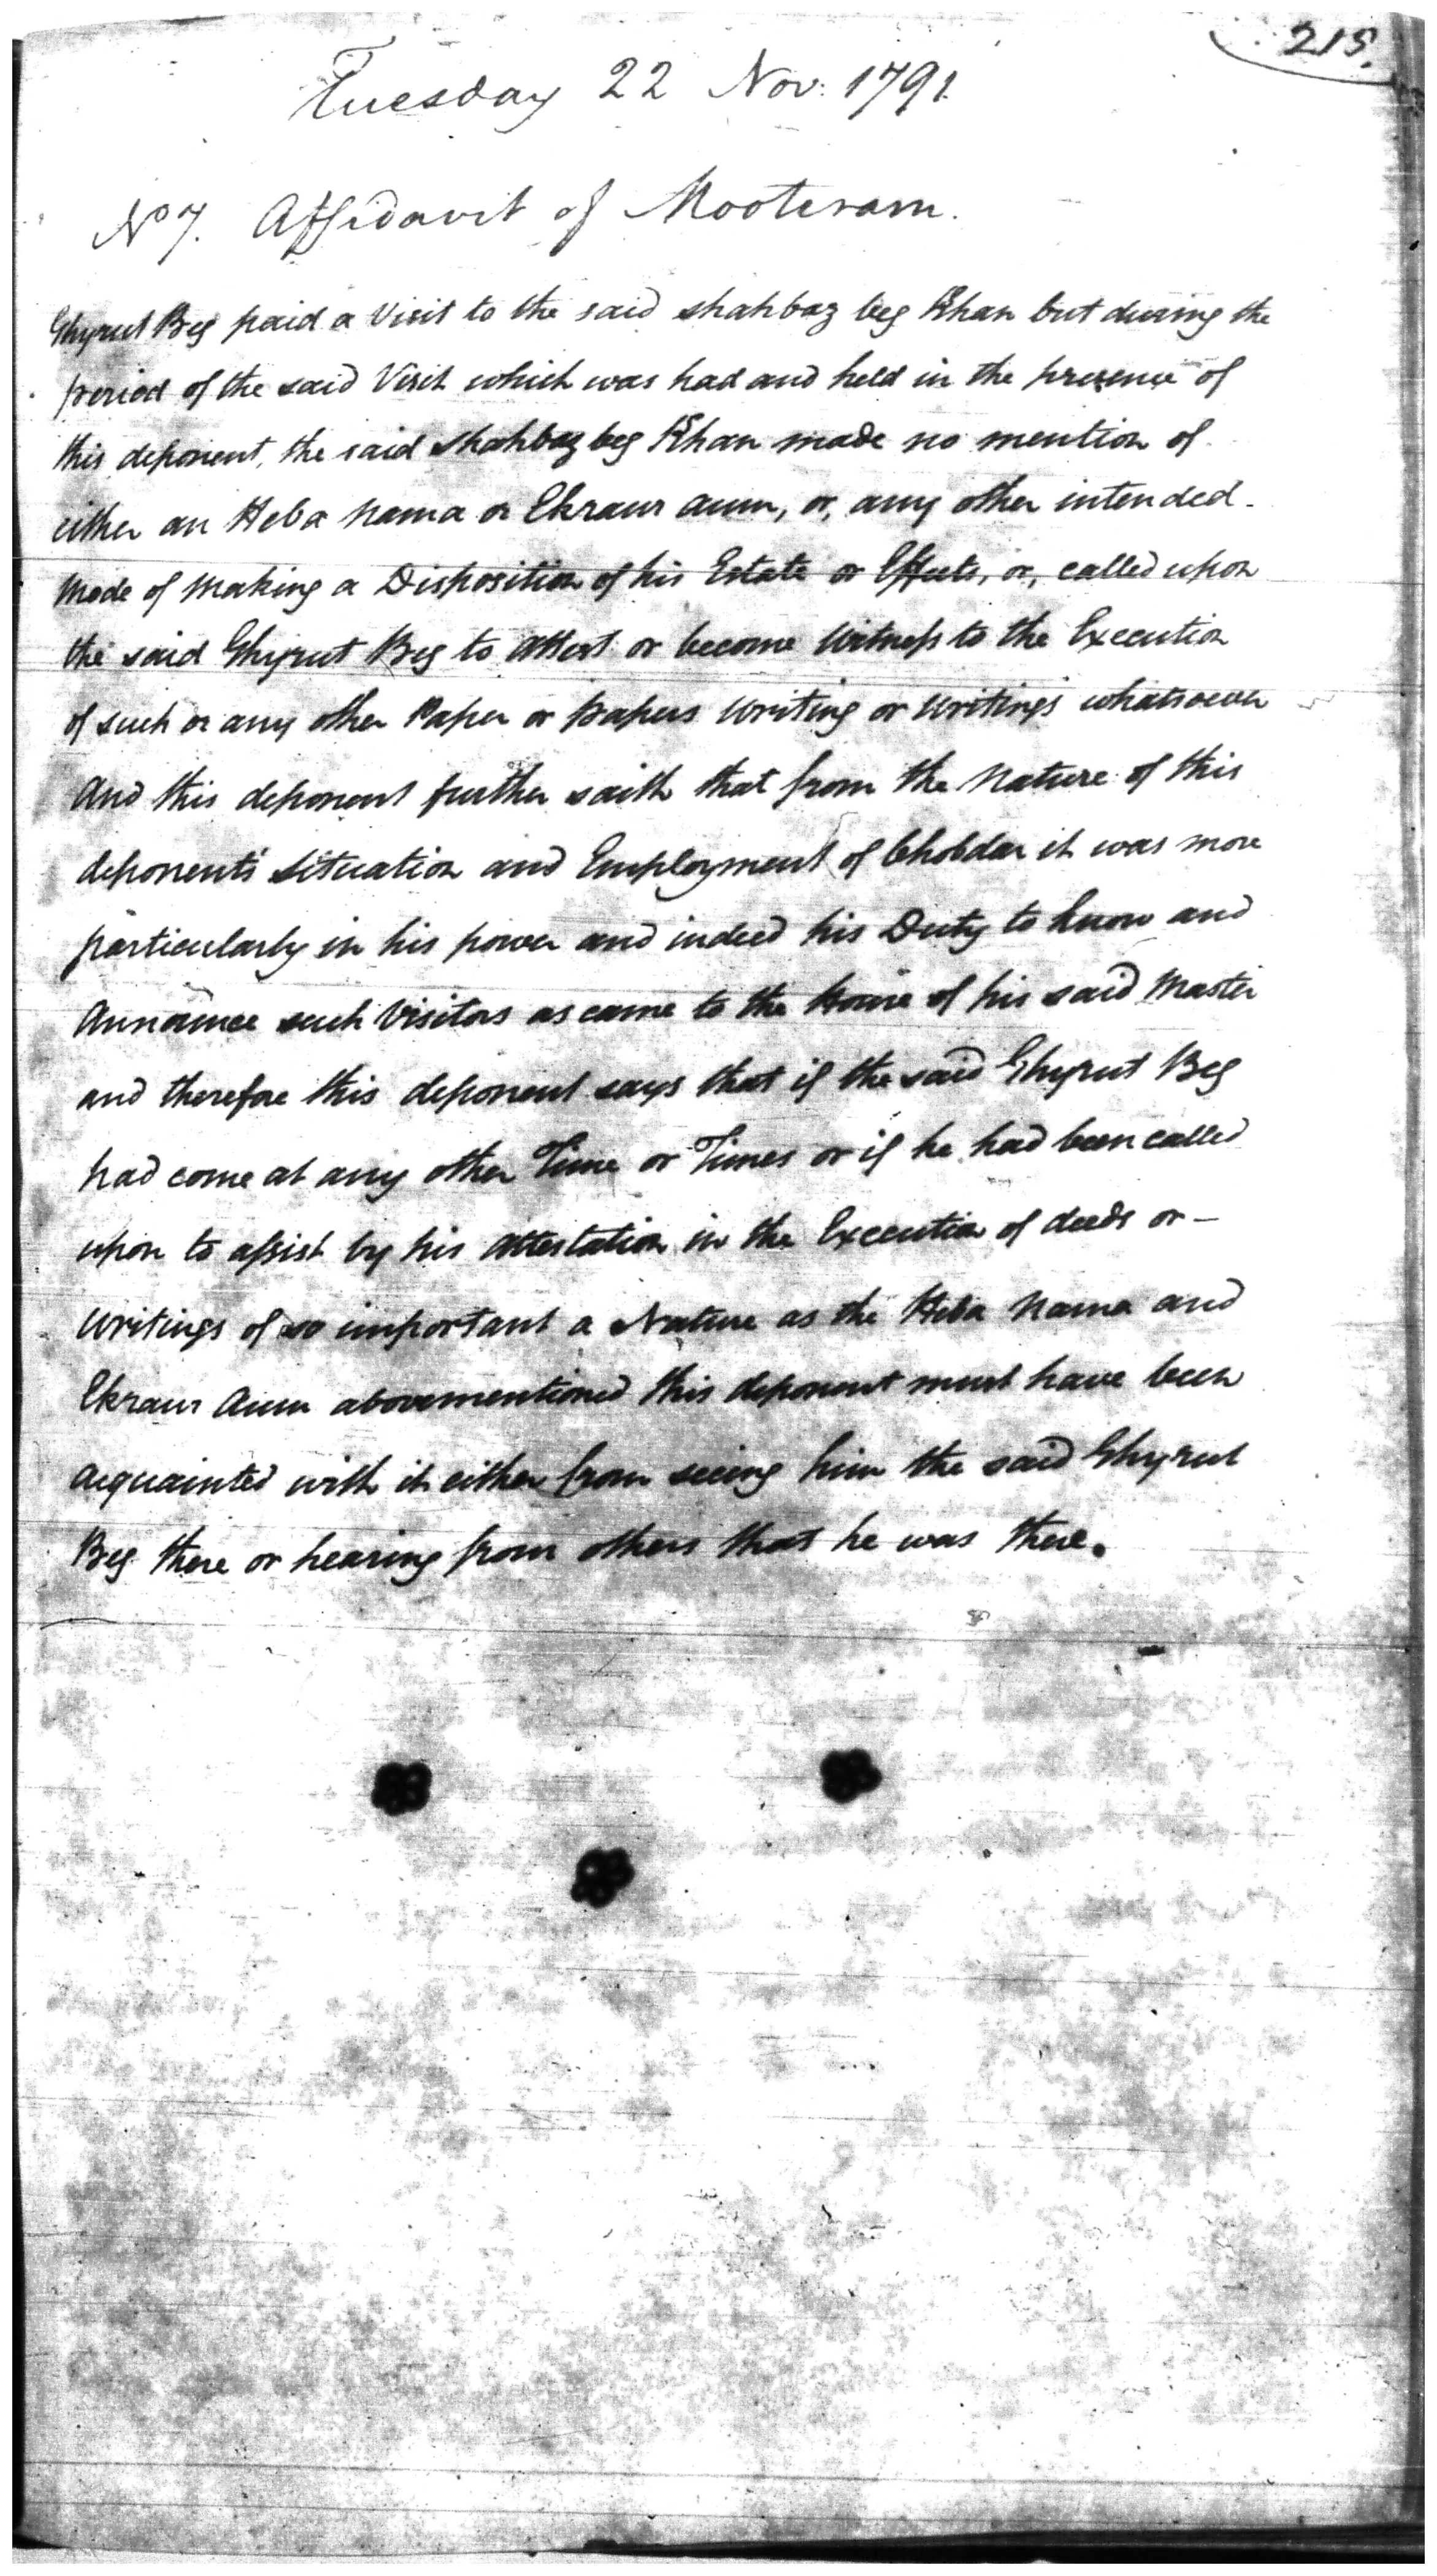 215.
Tuesday 22 Nov: 1791.
No 7. Affidavit of Mooteram.
Ghyrut Beg paid a Visit to the said shahbaz beg Khan but during the
period of the said Visit which was had and held in the presence of
this deponent, the said shahbaz beg Khan made no mention of
either an Heba nama or Ekraur aum, or, any other intended -
mode of making a Disposition of his Estate or Effects, or, called upon
the said Ghyrut Beg to attest or become Witness to the Execution
of such or any other Paper or papers Writing or Writings whatsoever
And this deponent further saith that from the Nature of this
deponents situation and Employment of Chobdar it was more
particularly in his power and indeed his Duty to know and
Announce such Visitors as came to the House of his said Master
and therefore this deponent says that if the said Ghyrut Beg
had come at any other Time or Times or if he had been called
upon to assist by his attestation in the Execution of deeds or -
Writings of so important a Nature as the Heba Nama and
Ekraur Aum abovementioned this deponent must have been
acquainted with it either from seeing him the said Ghyrut
Beg there or hearing from others that he was there.